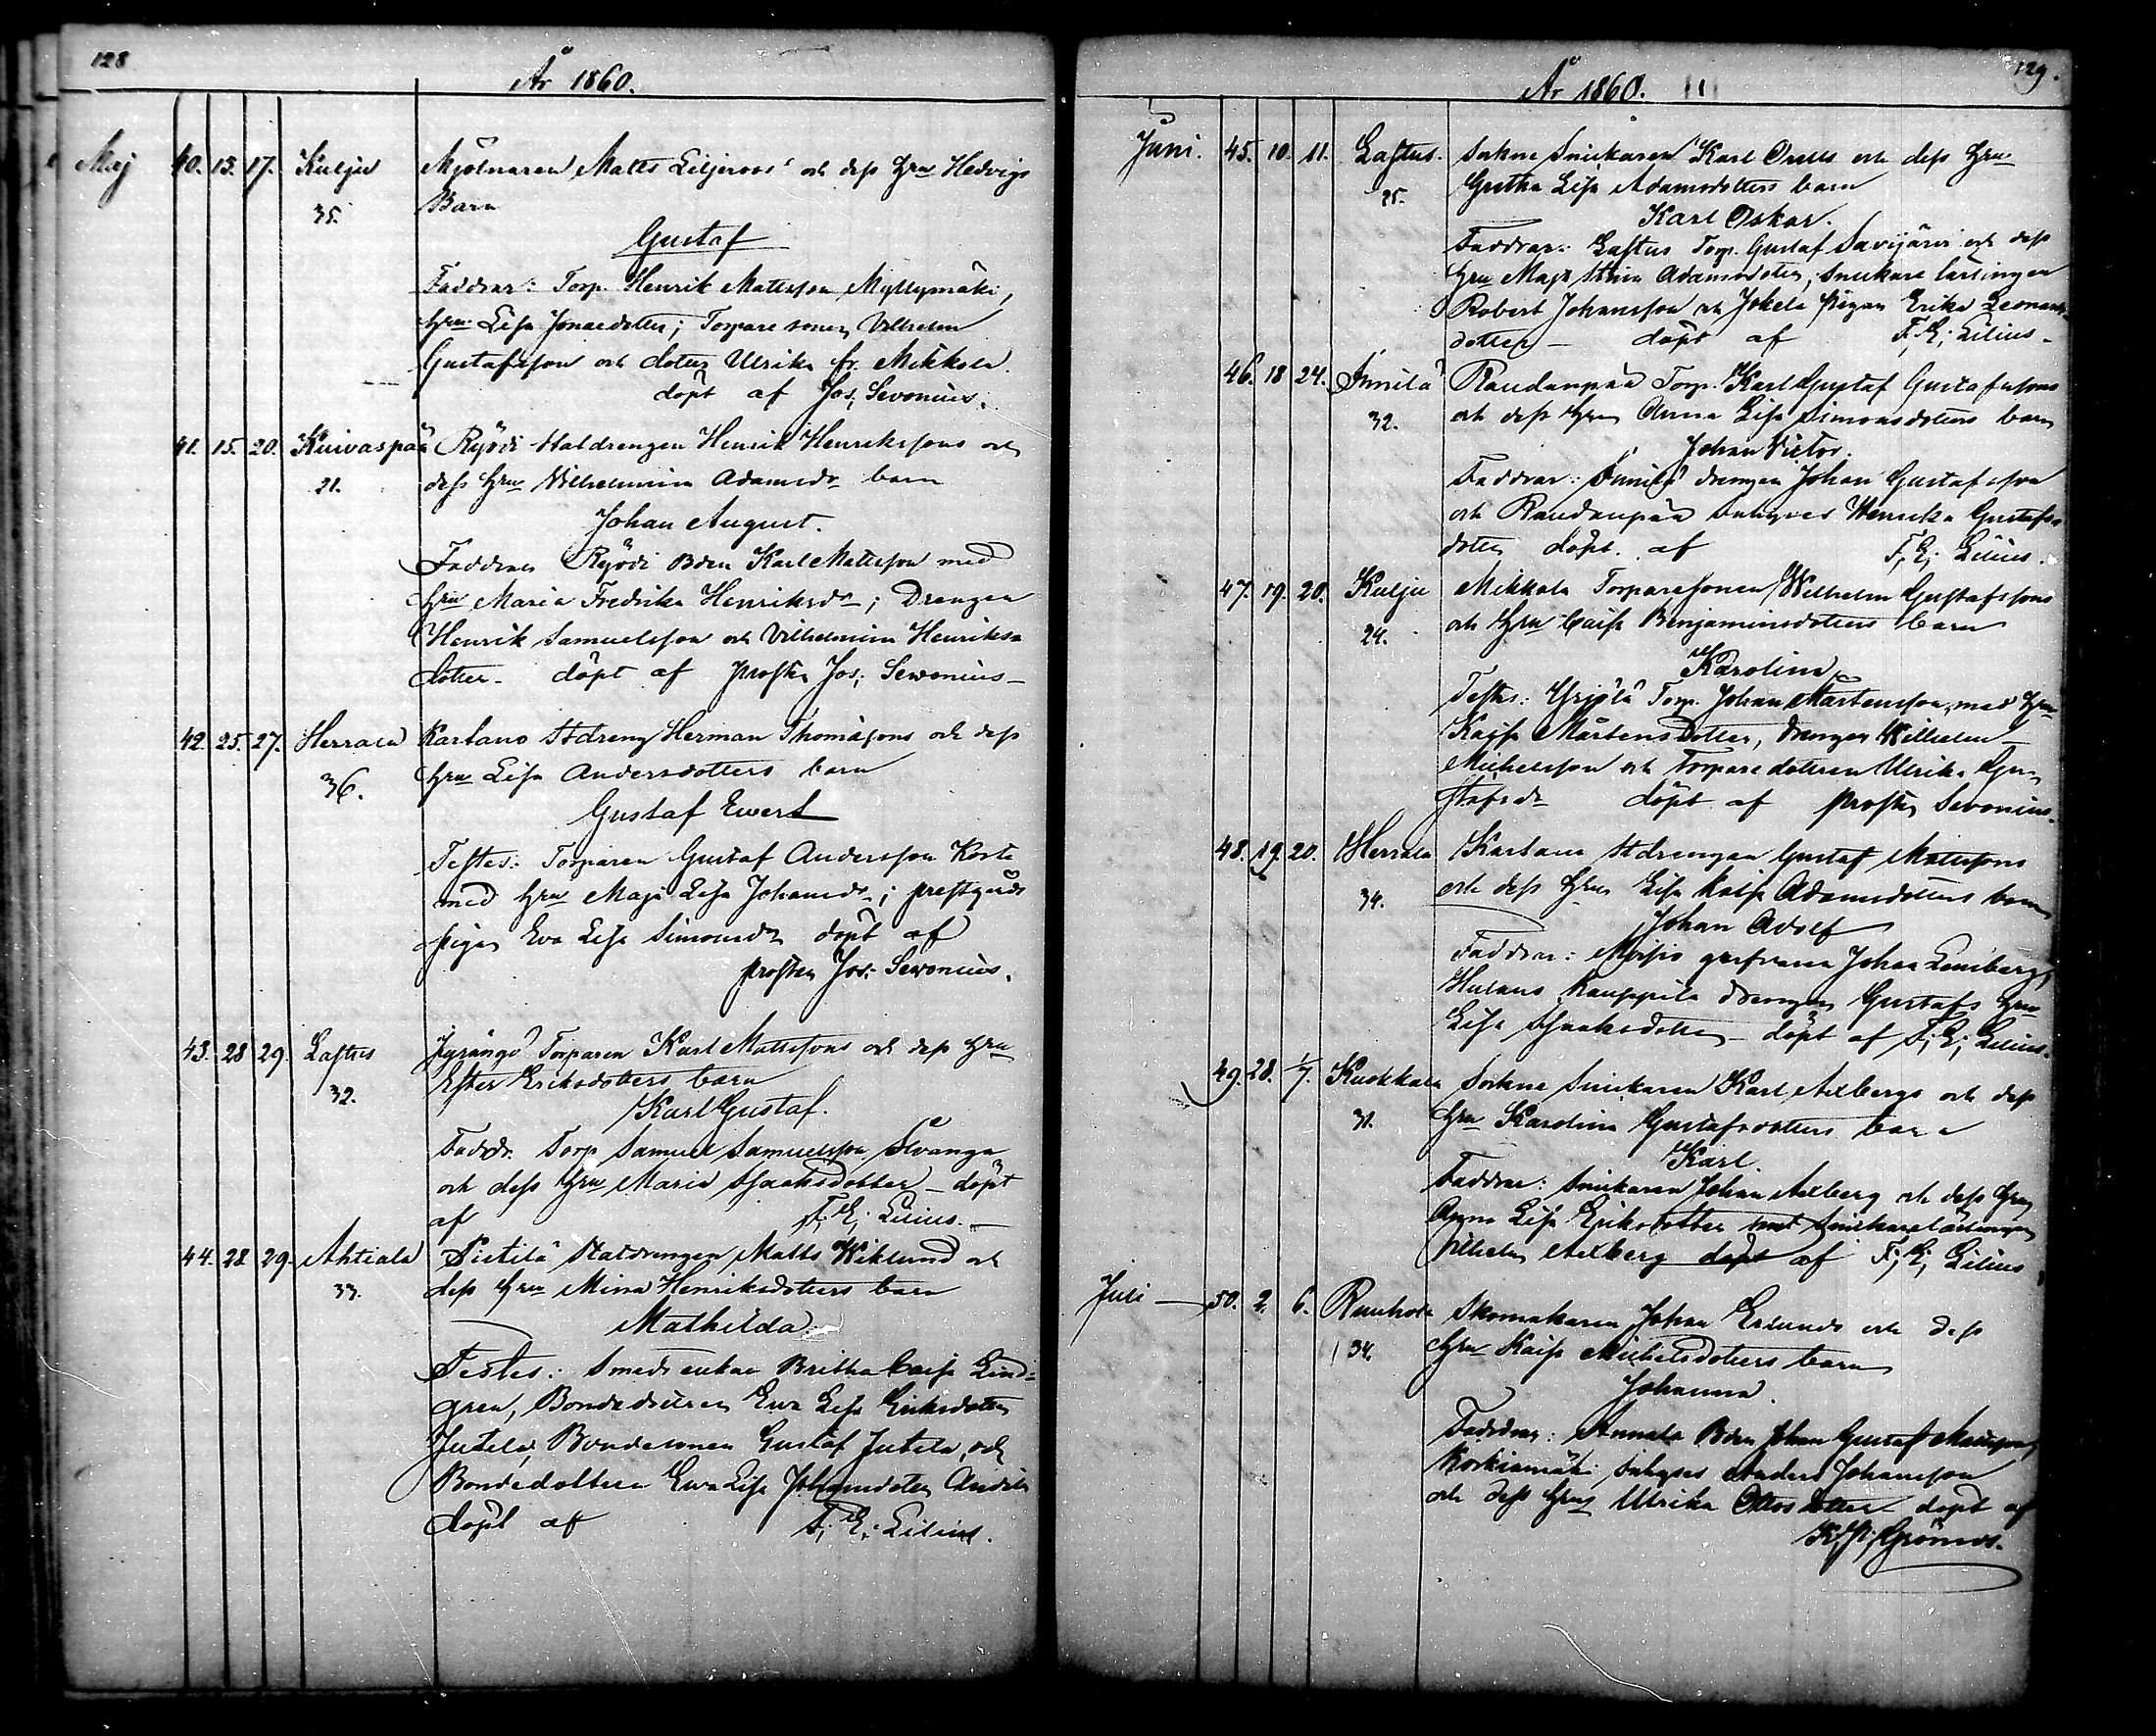 128
År 1860.
Maj 40. 15. 17. Kulju Mjölnaren Matts Liljeroos' och dess Hru Hedvigs
35. Barn
Gustaf
Faddrar: Torp. Henrik Mattsson Myllymäki,
Hru Lisa Jonaedotter; Torpare sonen Vilhelm
Gustafsson och dotter Ulrika fr. Mikkola.
döpt af Jos; Sevonius.
41. 15. 20. Kuivaspää Ryödi Staldrengen Henrik Henrikssons och
21. dess Hru Vilhelmina Adamsdr barn
Johan August.
Faddrar Ryödi Bden Karl Mattsson med
Hru Maria Fredrika Henriksdr; Drengen
Henrik Samuelsson och Vilhelmina Henriks
dotter. döpt af prosten Jos; Sevonius
42. 25. 27. Herrala Kartano Stdreng Herman Thomassons och dess
36. Hru Lisa Andersdotters barn
Gustaf Ewert
Testes: Torparen Gustaf Andersson
med Hru Maja Lisa Johansdr; prestgårds
pigan Eva Lisa Simonsdr döpt af
prosten Jos: Sevonius.
43. 28 29. Laftus Torparen Karl Mattssons och dess Hru
32. Ester Eriksdotters barn
Karl Gustaf.
Faddr. Torp Samuel Samuelsson
och dess Hru Maria Isaaksdotter - döpt
af F. E; Lilius.
44. 28 29. Ahtiala Pietilä Staldrengen Matts Wiklund och
33. dess Hru Mina Henriksdotters barn
Mathilda.
Testes: Smeds enkan Britha Caisa Lind-
gren, Eva Lisa Eriksdotter
Jutila, Bondesonen Gustaf Jutila, och
Bondedottren Eva Lisa Johansdotter
döpt af F; E; Lilius.
129.
År 1860.
Juni. 45. 10. 11. Laftus. Sockne Snickaren Karl och dess Hru
25. Gretha Lisa Adamsdotters barn
Karl Oskar.
Faddrar: Laftus Torp. Gustaf Savijärvi och dess
Hru Maja Stina Adamsdotter, Snickare lärlingen
Robert Johansson och Jokela pigan Erika Leonards-
dotter - döpt af F; E; Lilius.
46. 18 24. Raudanpää Torp. Karl Gustaf Gustafssons
32. och dess Hru Anna Lisa Simonsdotters barn
Johan Victor.
Faddrar: drengen Johan Gustafsson
och Raudanpää Inhyses Henrika Gustafs-
dotter döpt af F; E; Lilius.
47. 19. 20. Kulju Mikkola Torparesonen Wilhelm Gustafssons
24. och Hru Caisa Benjaminsdotters barn
Karolina
Testes: Yrjölä Torp. Johan Mårtensson, med Hru
Kaisa Mårtensdotter, drengen Wilhelm
Michelsson och Torparedottren Ulrika Gu-
stafsdr döpt af prosten Sevonius.
48. 19. 20. Herrala Kartano Stdrengen Gustaf Mattssons
34. och dess Hru Lisa Kaisa Adamsdotters barn
Johan Adolf
Faddrar: Johan
Kauppila drengen Gustafs Hru
Lisa Isaaksdotter - döpt af F; E; Lilius.
49. 28. 1/7. Kuokkala Sockne Snickaren Karl Axbergs och dess
31. Hru Karolina Gustafsdotters barn
Karl.
Faddrar: Snickaren Johan Axberg och dess Hru
Anna Lisa Eriksdotter samt Snickarelärlingen
Vilhelm Axberg döpt af F; E; Lilius
Juli 50. 2. 6. Ruuhola Skomakaren Johan Erlunds och dess
34. Hru Kaisa Michelsdotters barn
Johanna.
Faddrar: Annala Bden Johan Gustaf Mattsson,
Korkiamäki Inhyses Anders Johansson
och dess Hru Ulrika Ottosdotter döpt af